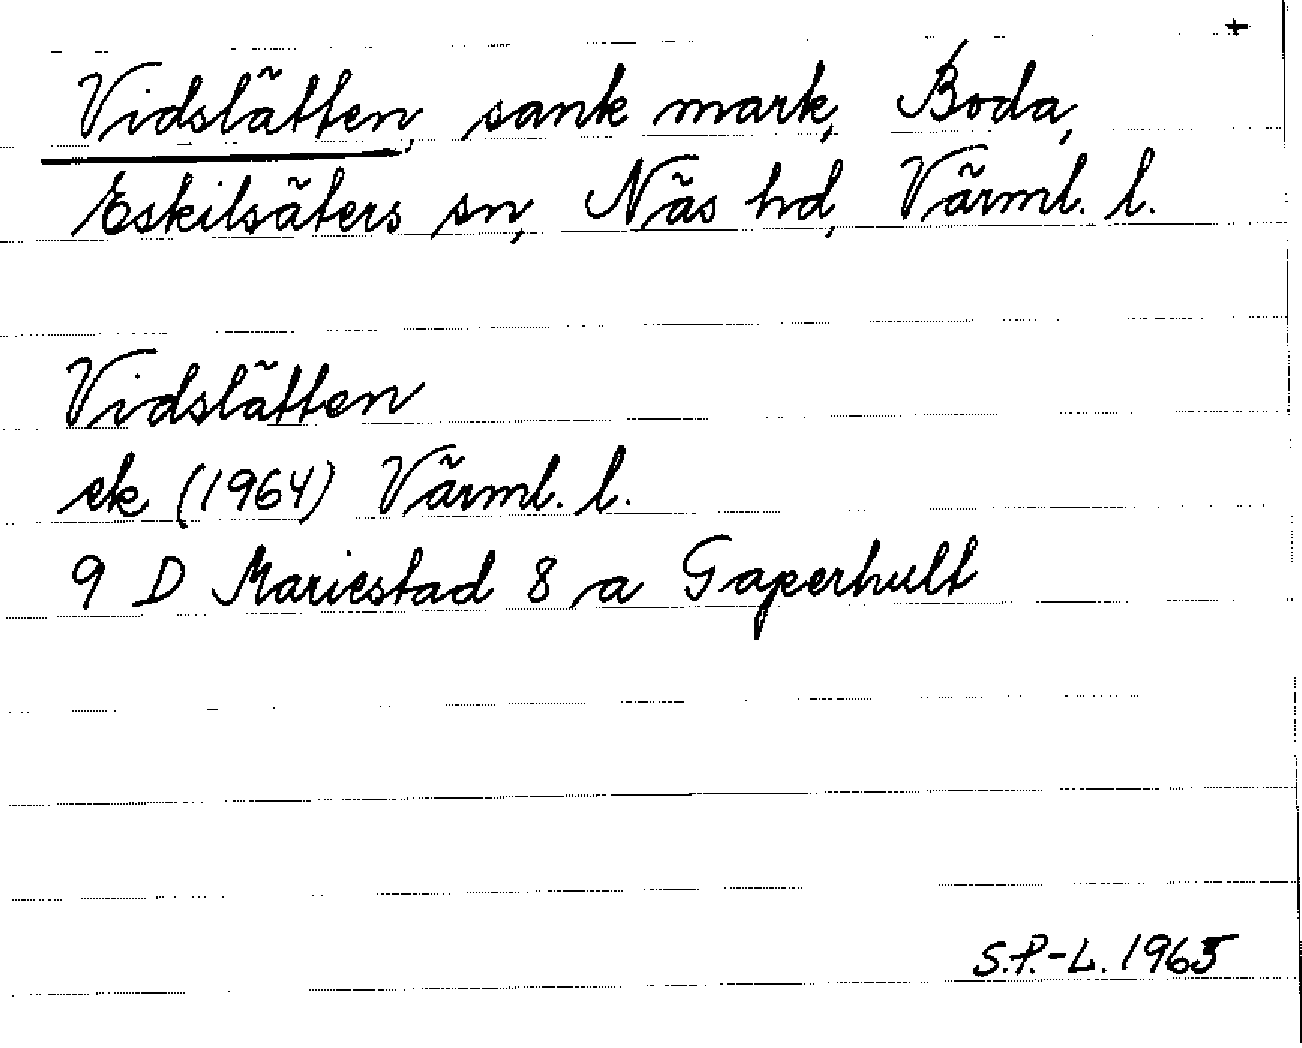 +
Vidslätten, sank mark, Boda,
Eskilsäters sn, Näs hd, Värml. l.
Vidslätten
ek (1964) Värml. l.
9 D Mariestad 8 a Gaperhult
S.P.-L. 1965